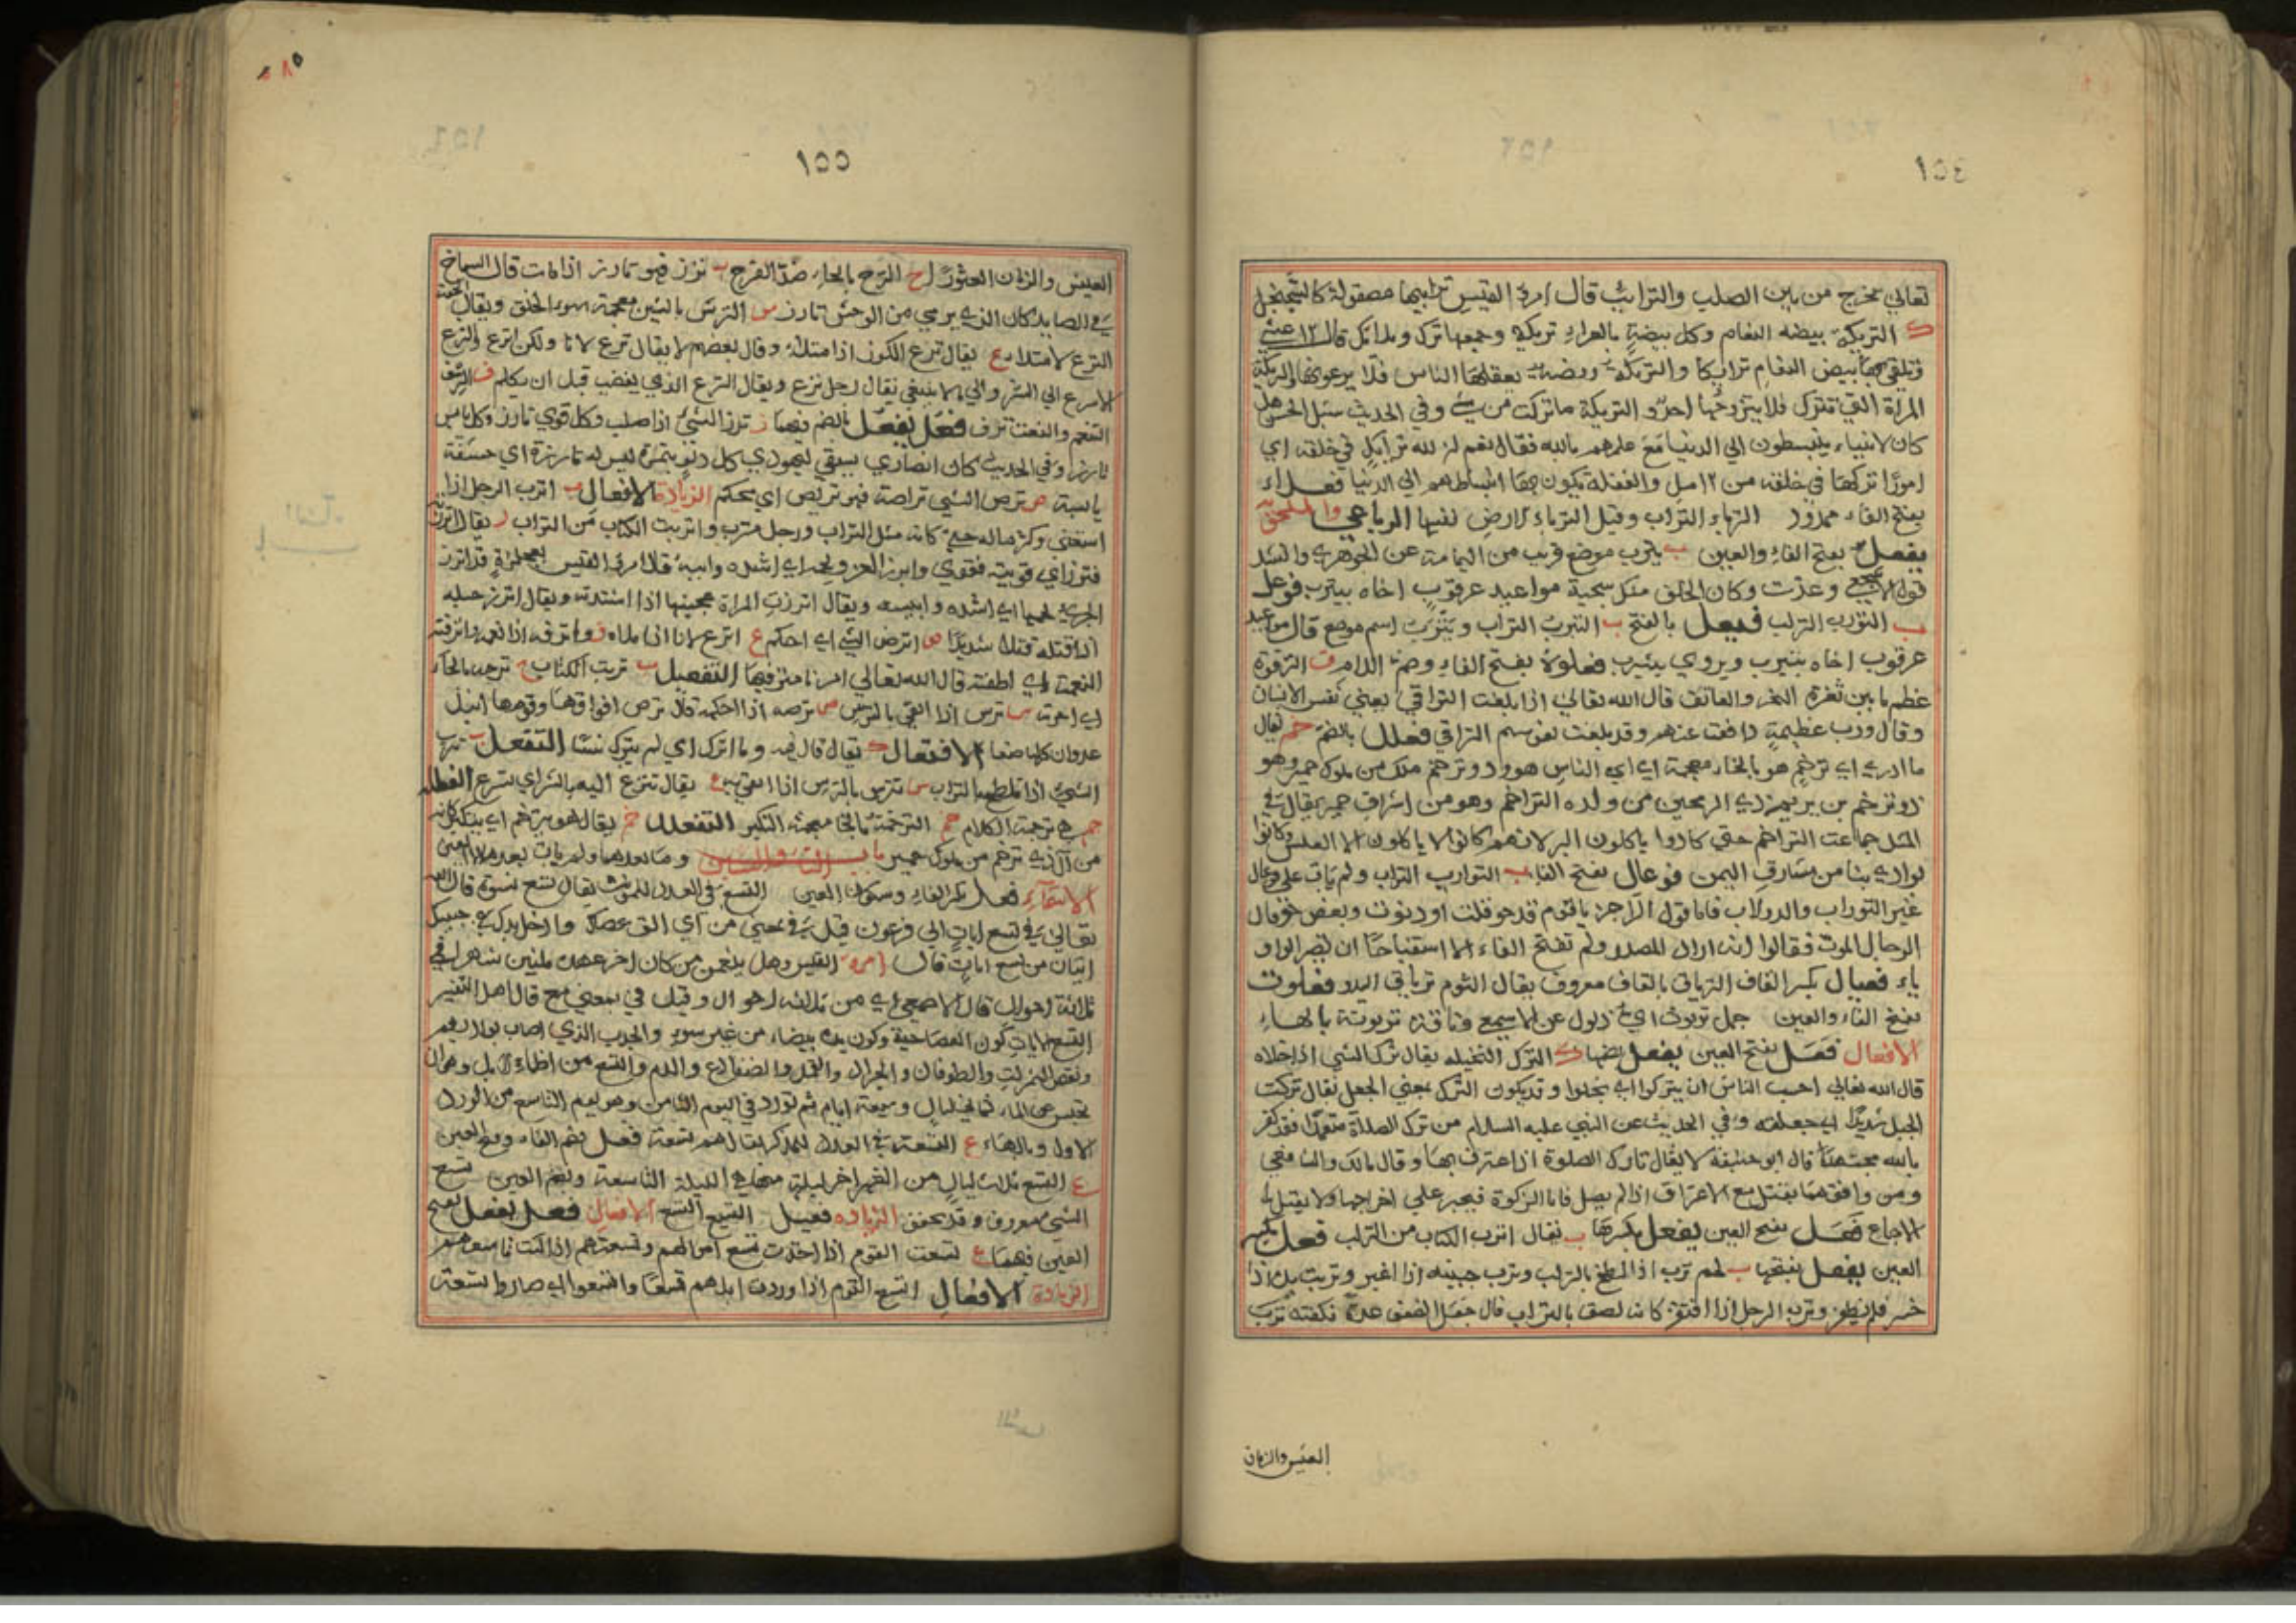 ١٥٤
تعالى يخرج من بين الصلب والترائب قال امرئ القيس ترايبها مصقولة كالسجنجل
ك التريكة بيضه النعام وكل بيضة بالعراء تريكة وجمعها ترك وترائك قال الاعشى
وتلقى بها بيض النعام ترايكا والتريكة روضة يغفلها الناس فلا يرعونها والتريكة
المرأة التي تترك فلا يتزوجها احد والتريكة ما تركت من شيء وفي الحديث سئل الحسن هل
كان الانبياء ينبسطون الي الدنيا مع علمهم بالله فقال نعم ان لله ترايك في خلقه اي
امورا تركها في خلقه من الامل والغفلة يكون بها انبساطهم الي الدنيا فعلاء
بفتح الفاء ممدود الترباء التراب وقيل الترباء الارض نفسها الرباعي والملحق به
يفعل بفتح الفاء والعين ب يترب موضع قريب من اليمامة عن الجوهري وانشد
قول الاشجعي وعدت وكان الخلق منك سجية مواعيد عرقوب اخاه بيترب فوعل
ب التورب التراب فيعل بالفتح ب التيرب التراب ويترب اسم موضع قال مواعيد
عرقوب اخاه بتيرب ويروي بيترب فعلوة بفتح الفاء وضم اللام ق الترقوة
عظم ما بين ثغرة النحر والعاتق قال الله تعالى اذا بلغت التراقي يعني نفس الانسان
وقال ورب عظيمة دافعت عنهم وقد بلغت نفوسهم التراقي فعلل بالضم خم يقال
ما ادري اي ترخم هو بالخاء معجمة اي اي الناس هو وذو ترخم ملك من ملوك حمير وهو
ذو ترخم بن يريم ذي الرمحين من ولده التراخم وهو من اشراف حمير يقال في
المثل جماعت التراخم حتى كادوا ياكلون البر لانهم كانوا لا ياكلون الا العلس وكانوا
بوادي بنا من مشارق اليمن فوعال بفتح الفاء ب التوارب التراب ولم يات على فوعال
غير التوراب والدولاب فاما قول الراجز يا قوم قد حوقلت او دنوت وبعض حوقال
الرجال الموت فقالوا انه اراد المصدر ولم تفتح الفاء الا استقباحا ان تصير الواو
ياء فعيال بكسر الفاء الترياق بالقاف معروف يقال الثوم ترياق البدو فعلوت
بفتح الفاء والعين جمل تربوت اي ذلول عن الاصمعي وناقة تربوتة بالهاء
الافعال فعل بفتح العين يفعل بضمها ك الترك التخلية يقال ترك الشي اذا خلاه
قال الله تعالى احسب الناس ان يتركوا اي يخلوا وقد يكون الترك بمعني الجعل يقال تركت
الحبل شديدا اي جعلته وفي الحديث عن النبي عليه السلام من ترك الصلاة متعمدا فقد كفر
بالله مجتهدا قال ابو حنيفة لا يقال تارك الصلوة اذا اعترف بها وقال مالك والشافعي
ومن وافقهما يقتل مع الاعتراف اذا لم يصل فاما الزكوة فيجبر علي اخراجها ولا يقتل
الاجماع فعل بفتح العين يفعل بكسرها ب يقال اترب الكتاب من التراب فعل بكسر
العين يفعل بفتحها ب لحم ترب اذا تلطخ بالتراب وترب جبينه اذا اغبر وتربت يداه اذا
خسر فلم يظفر وترب الرجل اذا افتقر كانه لصق بالتراب قال جعل الضعف عدة نكفته ترب
العيش والزمان
١٥٥
العيش والزمان العثور ح الترح بالحاء ضد الفرح ز ترز فهو تارز اذا مات قال الشماخ
في الصايد كان الذي يرمي من الوحش تارز س الترش بالشين معجمة سوء الخلق ويقال الخفة
الترع الامتلاء ع يقال ترع الكوز اذا امتلا وقال بعضهم لا يقال ترع الاناء ولكن اترع والترع
الاسرع الي الشر والي ما لا ينبغي يقال رجل ترع ويقال الترع الذي يغضب قبل ان يكلم ف الترف
التنعم والنعت ترف فعل يفعل بالضم فيهما ز ترز الشيء اذا صلب وكل قوي تارز وكل يابس
تارز وفي الحديث كان انصاري يسقي ليهودي كل دلو بتمرة ليس له تارزة اي حشفة
يابسة ص ترص الشي تراصة فهو تريص اي محكم الزيادة الافعال ب اترب الرجل اذا
استغني وكثر ماله حتى كانه مثل التراب ورجل مترب واتربت الكتاب من التراب ز يقال اترزته
فترز اي قويته فقوي واترز العدو لحمه اي اشده وايبسه قال امرئ القيس بعجلزة قد اترز
الجري لحمها اي اشده وايبسه ويقال اترزت المراة عجينها اذا اشتدت ويقال اترز حبله
اذا فتله فتلا شديدا ص اترص الشي اي احكم ع اترع الاناء اذا ملأه ف واترفه اذا نعمه واترفته
النعمة اي اطغته قال الله تعالي امرنا مترفيها التفعيل ب تربت الكتاب ح ترحه بالحاء
اي احزنه س ترس اذا اتقي بالترس ص ترصه اذا احكمه قال ترص افواقها وقومها انبل
عدوان كلها صنعا الافتعال ك يقال قال فيه وما اترك اي لم يترك شيئا التفعل ب تترب
الشيء اذا تلطخ بالتراب س تترس بالترس اذا اتقي به ع يقال تترع اليه بالشر اي تسرع الفعللة
جم ترجمة الكلام خم الترخمة بالخا معجمة التكبر التفعلل خم يقال هو يترخم اي يتكبر كانه
من آل ذي ترخم من ملوك حمير باب التاء والسين وما بعدهما ولم يات بعدهما الا العين
الاسماء فعل بكسر الفاء وسكون العين التسع في العدد للمؤنث يقال تسع نسوة قال الله
تعالي في تسع ايات الي فرعون قيل في بمعني من اي الق عصاك وادخل يدك في جيبك
ايتان من تسع ايات قال امرئ القيس وهل ينعمن من كان اخر عهده ثلثين شهرا في
ثلاثة احوال قال الاصمعي اي من ثلاثة احوال وقيل في بمعني مع قال اهل التفسير
التسع الايات كون العصا حية وكون يده بيضاء من غير سوء والجدب الذي اصاب بواديهم
ونقص الثمرات والطوفان والجراد والقمل والضفادع والدم والتسع من اظماء الابل وهو ان
تحبس عن الماء ثماني ليال وسبعة ايام ثم تورد في اليوم الثامن وهو اليوم التاسع من الورد
الاول وبالهاء ع التسعة في العدد للمذكر يقال هم تسعة فعل بضم الفاء وفتح العين
ع التسع ثلاث ليال من الشهر اخر ليلة منها هي الليلة التاسعة وبضم العين تسع
الشي معروف وقد يخفف الزياده فعيل التسيع التسع الافعال فعل يفعل بفتح
العين فيهما ع تسعت القوم اذا اخذت تسع اموالهم وتسعتهم اذا كنت تاسعهم
الزيادة الافعال اتسع القوم اذا وردت ابلهم تسعا واتسعوا اي صاروا تسعة